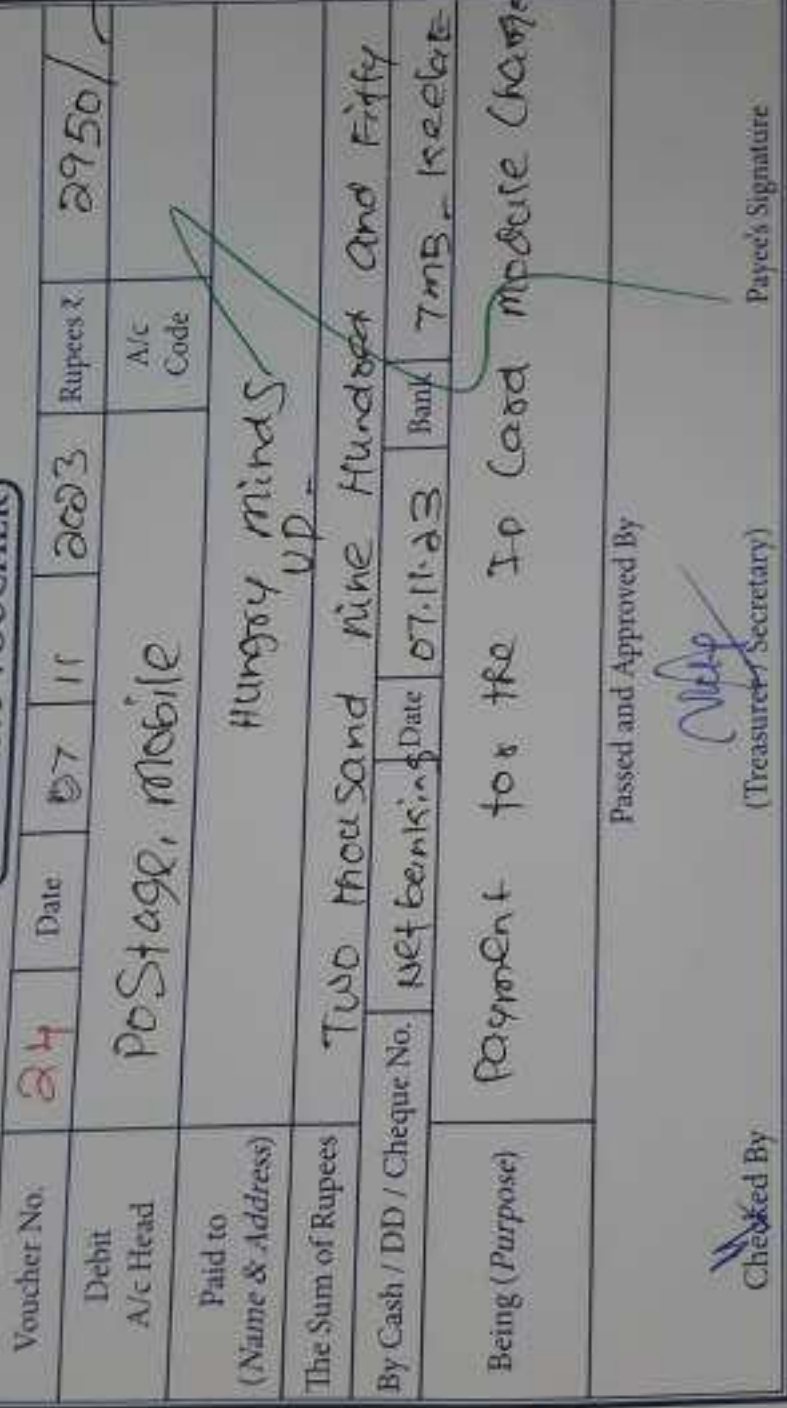 VOUCHER
Voucher No. 24 Date 07 11 2023 Rupees ₹ 2950/-
Debit A/c Head Postage, Mobile A/c Code
Paid to (Name & Address) Hungry Minds
UP -
The Sum of Rupees Two thousand nine Hundred and Fifty
By Cash / DD / Cheque No. Netbanking Date 07.11.23 Bank 7MB - Keelate
Being (Purpose) Payment for the ID Card module
Passed and Approved By
Checked By (Treasurer / Secretary) Payee's Signature